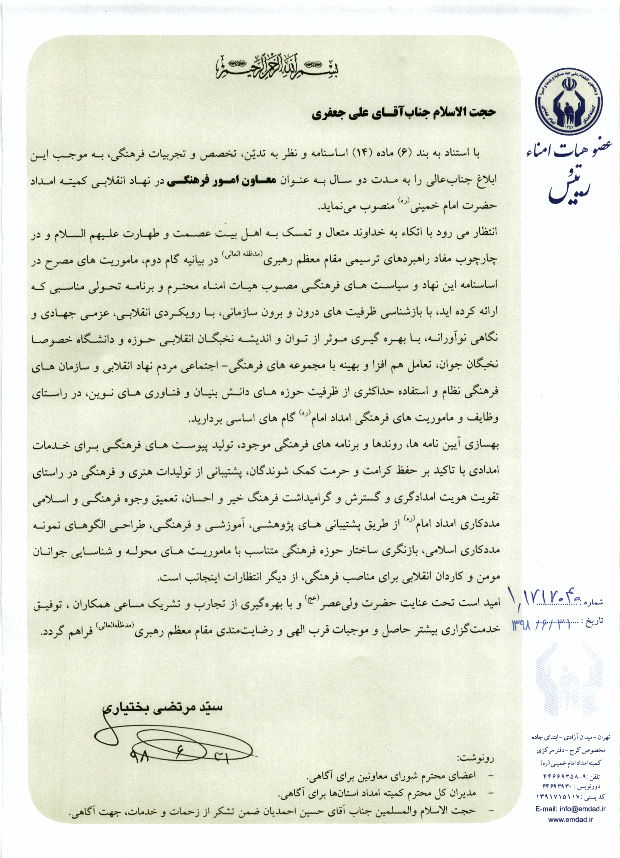 بسم الله الرحمن الرحیم
حجت الاسلام جناب آقـای علی جعفری
با استناد به بند (۶) ماده (۱۴) اساسنامه و نظر به تدیّن، تخصص و تجربیات فرهنگی، به موجب این
ابلاغ جناب‌عالی را به مدت دو سال به عنوان معاون امور فرهنگـی در نهاد انقلابی کمیته امداد
حضرت امام خمینی(ره) منصوب می‌نماید.
انتظار می رود با اتکاء به خداوند متعال و تمسک به اهل بیت عصمت و طهارت علیهم السلام و در
چارچوب مفاد راهبردهای ترسیمی مقام معظم رهبری(مدظله العالی) در بیانیه گام دوم، ماموریت های مصرح در
اساسنامه این نهاد و سیاست های فرهنگی مصوب هیات امناء محترم و برنامه تحولی مناسبی که
ارائه کرده اید، با بازشناسی ظرفیت های درون و برون سازمانی، با رویکردی انقلابی، عزمی جهادی و
نگاهی نوآورانه، با بهره گیری موثر از توان و اندیشه نخبگان انقلابی حوزه و دانشگاه خصوصا
نخبگان جوان، تعامل هم افزا و بهینه با مجموعه های فرهنگی- اجتماعی مردم نهاد انقلابی و سازمان های
فرهنگی نظام و استفاده حداکثری از ظرفیت حوزه های دانش بنیان و فناوری های نوین، در راستای
وظایف و ماموریت های فرهنگی امداد امام(ره) گام های اساسی بردارید.
بهسازی آیین نامه ها، روندها و برنامه های فرهنگی موجود، تولید پیوست های فرهنگی برای خدمات
امدادی با تاکید بر حفظ کرامت و حرمت کمک شوندگان، پشتیبانی از تولیدات هنری و فرهنگی در راستای
تقویت هویت امدادگری و گسترش و گرامیداشت فرهنگ خیر و احسان، تعمیق وجوه فرهنگی و اسلامی
مددکاری امداد امام(ره) از طریق پشتیبانی های پژوهشی، آموزشی و فرهنگی، طراحی الگوهای نمونه
مددکاری اسلامی، بازنگری ساختار حوزه فرهنگی متناسب با ماموریت های محوله و شناسایی جوانان
مومن و کاردان انقلابی برای مناصب فرهنگی، از دیگر انتظارات اینجانب است.
امید است تحت عنایت حضرت ولی‌عصر(عج) و با بهره‌گیری از تجارب و تشریک مساعی همکاران ، توفیق
خدمت‌گزاری بیشتر حاصل و موجبات قرب الهی و رضایت‌مندی مقام معظم رهبری(مدظله‌العالی) فراهم گردد.
سیّد مرتضی بختیاری
۹۸ ۶ ۳۱
رونوشت:
- اعضای محترم شورای معاونین برای آگاهی.
- مدیران کل محترم کمیته امداد استان‌ها برای آگاهی.
- حجت الاسلام والمسلمین جناب آقای حسین احمدیان ضمن تشکر از زحمات و خدمات، جهت آگاهی.
عضو هیات امناء
و
رئیس
شماره
تاریخ : ۱۳۹۸/۶/۳۱
تهران -میدان آزادی -ابتدای جاده
مخصوص کرج -دفتر مرکزی
کمیته امداد امام خمینی (ره)
تلفن :۹-۴۴۶۶۹۳۵۸
دورنویس : ۴۴۶۶۹۳۹۰
کد پستی : ۱۳۹۱۷۱۵۱۱۷
E-mail: info@emdad.ir
www.emdad.ir